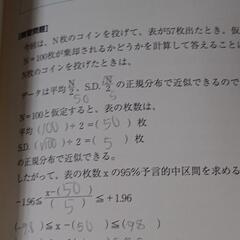 【練習問題】
今回は、N枚のコインを投げて、表が57枚出たとき、仮
N=100枚が棄却されるかどうかを計算して答えることに
N枚のコインを投げたときは、
データは平均 N/2、S.D. √N/2 の正規分布で近似できるので
50 5
N=100と仮定すると、表の枚数は、
平均 (100) ÷2=(50) 枚
S.D. (√100) ÷2=(5) 枚
の正規分布で近似できる。
したがって、表の枚数 x の95%予言的中区間を求める
-1.96≦ x-(50) / (5) ≦+1.96
(-9.8) ≦x-(50) ≦(9.8)